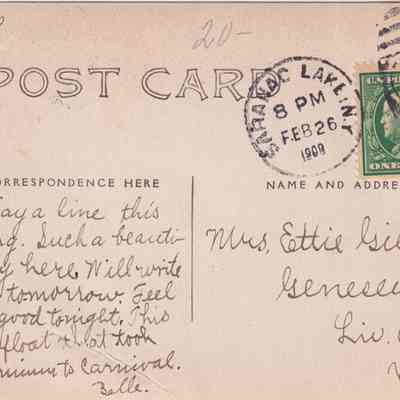 20-
POST CARD
SARANAC LAKE, N.Y.
8 PM
FEB 26
1909
ORRESPONDENCE HERE
NAME AND ADDRE
ay a line this
. Such a beauti-
y here. Will write
tomorrow. Feel
good tonight. This
float that took
to Carnival.
Belle.
Mrs. Ettie Gil
Genesse
Liv.